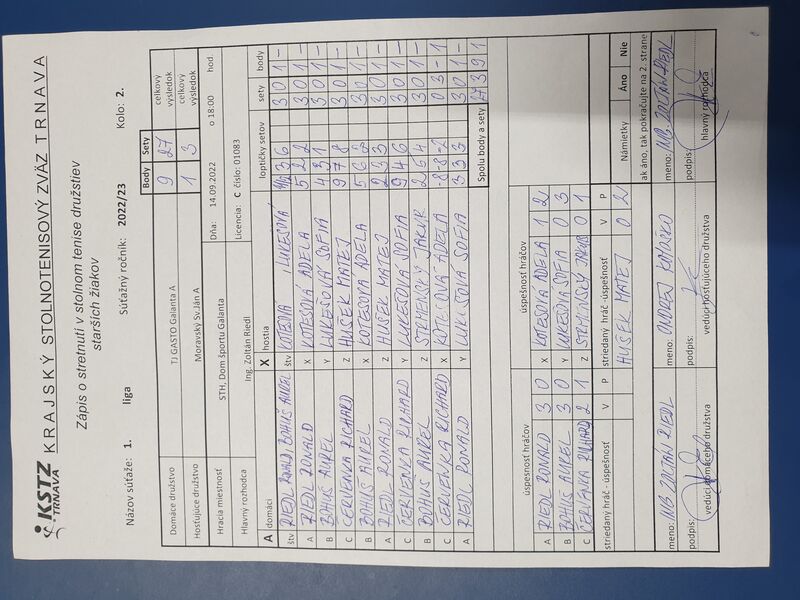 KSTZ
TRNAVA
KRAJSKÝ STOLNOTENISOVÝ ZVÄZ TRNAVA
Zápis o stretnutí v stolnom tenise družstiev
starších žiakov
Názov súťaže: 1. liga Súťažný ročník: 2022/23 Kolo: 2.
Body Sety
Domáce družstvo TJ GASTO Galanta A 9 27 celkový výsledok
Hosťujúce družstvo Moravský Sv.Ján A 1 3 celkový výsledok
Hracia miestnosť STH, Dom športu Galanta Dňa: 14.09.2022 o 18:00 hod.
Hlavný rozhodca Ing. Zoltán Riedl Licencia: C číslo: 01083
A domáci X hostia loptičky setov sety body
štv RIEDL RONALD BOHUŠ AUREL štv 3 6 3 0 1 -
A RIEDL RONALD X KOTESOVÁ ADELA 5 2 2 3 0 1 -
B BOHUŠ AUREL Y LUKEŠOVÁ SOFIA 4 3 1 3 0 1 -
C ČERVENKA RICHARD Z HUŠEK MATEJ 9 7 8 3 0 1 -
B BOHUŠ AUREL X KOTESOVÁ ADELA 5 6 2 3 0 1 -
A RIEDL RONALD Z HUŠEK MATEJ 2 3 3 3 0 1 -
C ČERVENKA RICHARD Y LUKEŠOVA SOFIA 9 4 6 3 0 1 -
B BOHUŠ AUREL Z JAKUB 2 6 4 3 0 1 -
C ČERVENKA RICHARD X ADELA -8 -8 -2 0 3 - 1
A RIEDL RONALD Y SOFIA 3 3 3 3 0 1 -
Spolu body a sety 27 3 9 1
úspešnosť hráčov úspešnosť hráčov
A RIEDL RONALD 3 0 X KOTESOVÁ ADELA 1 2
B BOHUŠ AUREL 3 0 Y LUKEŠOVA SOFIA 0 3
C ČERVENKA RICHARD 2 1 Z JAKUB 0 1
striedaný hráč - úspešnosť V P striedaný hráč -úspešnosť V P
HUŠEK MATEJ 0 2
Námietky Áno Nie
ak áno, tak pokračujte na 2. strane
meno: ING. ZOLTÁN RIEDL meno: ONDREJ meno: ING. ZOLTÁN RIEDL
podpis: podpis: podpis:
vedúci domáceho družstva vedúci hosťujúceho družstva hlavný rozhodca